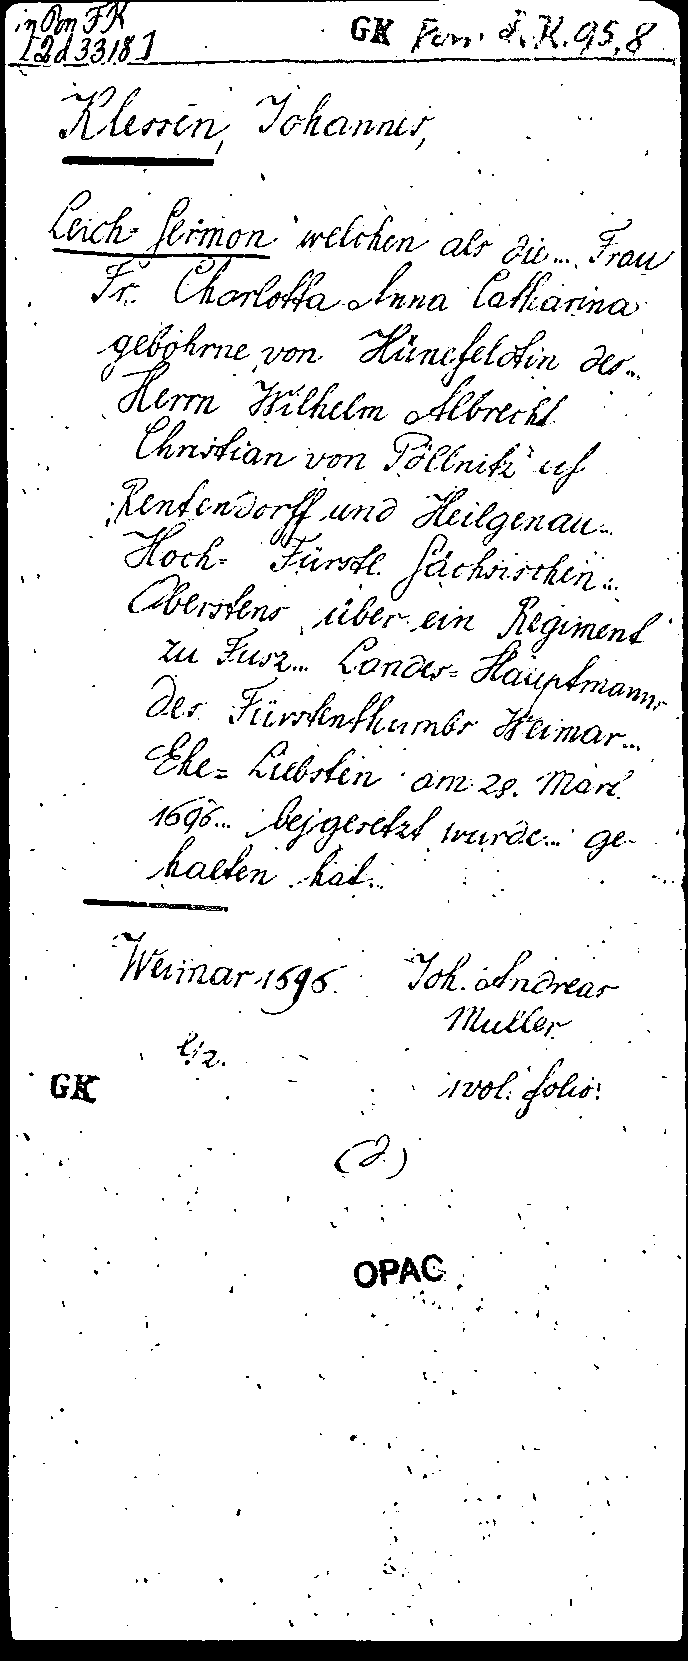 in Pon FK
[2d 3318]
GK Pon. F. K. 95, 8
Klessen, Johannes,
Leich-Sermon welchen als die... Frau
Fr. Charlotta Anna Catharina
gebohrne von Hünefeldtin des...
Herrn Wilhelm Albrecht
Christian von Pöllnitz uf
Rentendorff und Heilgenau...
Hoch- Fürstl. Sächsischen...
Oberstens über ein Regiment
zu Fusz... Landes-Hauptmanns
des Fürstenthumbs Weimar...
Ehe= Liebsten am 28. Mart.
1696... bejgesetzt wurde... ge-
halten hat...
Weimar 1696. Joh. Andreas
Müller
GK 1 vol. folio.
(2.)
OPAC